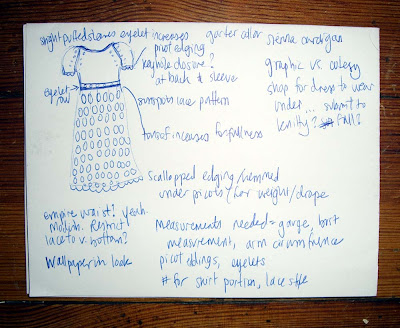 slight puffed sleeves eyelet increases
garter collar
picot edging
keyhole closure?
at back & sleeve
eyelet row
sunspots lace pattern
tons of increases for fullness
scalloped edging/hemmed
under picots/for weight/drape
empire waist? yeah.
Restrict
lace to v. bottom?
Wallpaper in look
measurements needed - gauge, bust
measurement, arm circumfrence
picot edgings, eyelets
# for skirt portion, lace style
sienna cardigan
graphic vs cutesy
shop for dress to wear
under... submit to
knitty? fall?